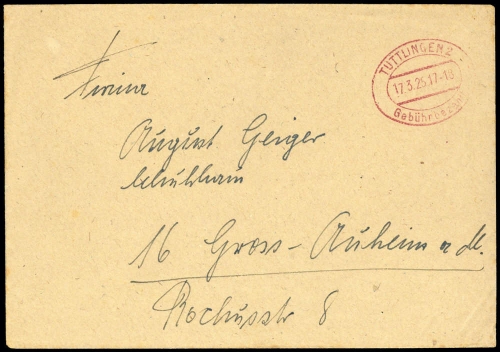 TUTTLINGEN 2
17.3.25.17-18
Gebühr bezahlt
Firma
August Geiger
Schuhhaus
16 Gross-Auheim a M.
Rochusstr 8